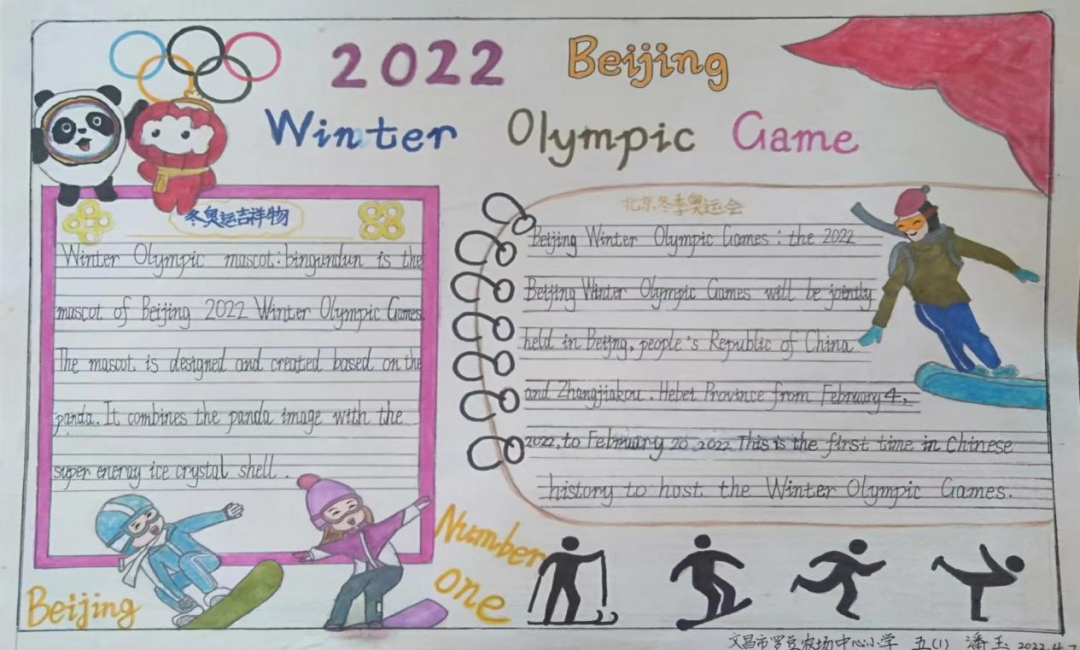 2022 Beijing
Winter Olympic Game
冬奥运吉祥物
Winter Olympic mascot:bingundun is the
mascot of Beijing 2022 Winter Olympic Games
The mascot is designed and created based on the
panda. It combines the panda image with the
super energy ice crystal shell.
北京冬季奥运会
Beijing Winter Olympic Games : the 2022
Beijing Winter Olympic Games will be jointly
held in Beijng, people's Republic of China
and Zhangjiakou, Hebet Province from February 4,
2022, to February 20, 2022. This is the first time in Chinese
history to host the Winter Olympic Games.
Beijing
Number
one
文昌市罗豆农场中心小学 五(1) 潘玉 2022.4.7